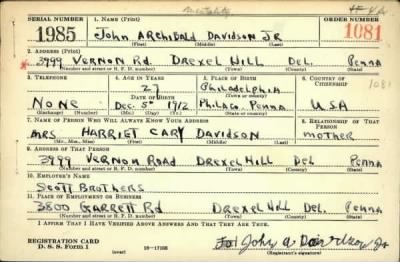 mentality
SERIAL NUMBER 1. NAME (Print) ORDER NUMBER
1985 John Archibald Davidson Jr 1081
(First) (Middle) (Last)
2. ADDRESS (Print)
3999 Vernon Rd. Drexel Hill Del. Penna
(Number and street or R. F. D. number) (Town) (County) (State)
3. TELEPHONE 4. AGE IN YEARS 5. PLACE OF BIRTH 6. COUNTRY OF CITIZENSHIP
27 Philadelphia 1081
DATE OF BIRTH (Town or county)
None Dec. 5th 1912 Philaco. Penna USA
(Exchange) (Number) (Mo.) (Day) (Yr.) (State or country)
7. NAME OF PERSON WHO WILL ALWAYS KNOW YOUR ADDRESS 8. RELATIONSHIP OF THAT PERSON
Mrs Harriet Cary Davidson mother
(Mr., Mrs., Miss) (First) (Middle) (Last)
9. ADDRESS OF THAT PERSON
3999 Vernon Road Drexel Hill Del Penna
(Number and street or R. F. D. number) (Town) (County) (State)
10. EMPLOYER'S NAME
Scott Brothers
11. PLACE OF EMPLOYMENT OR BUSINESS
3800 Garrett Rd Drexel Hill Del. Penna
(Number and street or R. F. D. number) (Town) (County) (State)
I AFFIRM THAT I HAVE VERIFIED ABOVE ANSWERS AND THAT THEY ARE TRUE.
REGISTRATION CARD
D. S. S. Form 1 (over) 16—17105 John A Davidson Jr
(Registrant's signature)